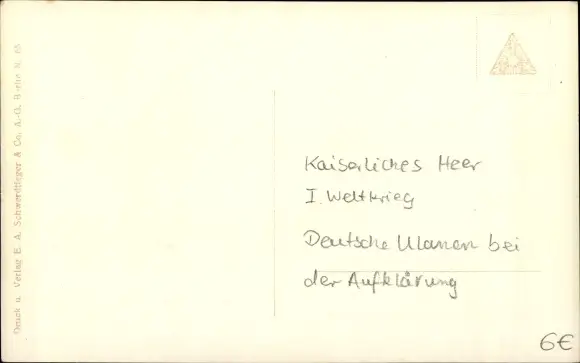 Druck u. Verlag E. A. Schwerdtfeger & Co. A.-G. Berlin N. 65
Kaiserliches Heer
I. Weltkrieg
Deutsche Ulanen bei
der Aufklärung
6€